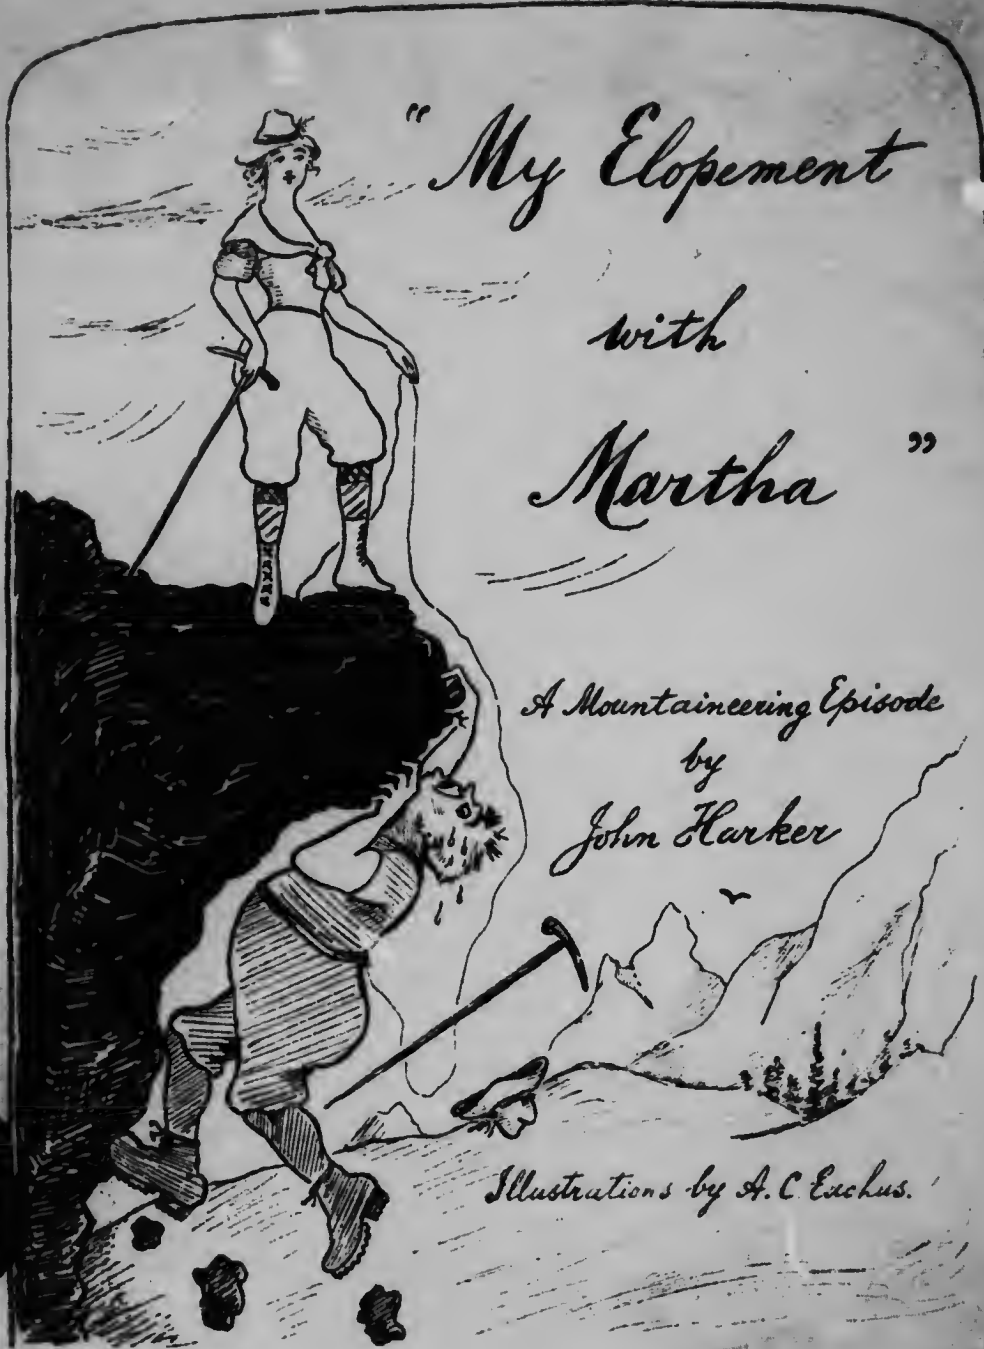 "My Elopement
with
Martha"
A Mountaineering Episode
by
John Harker
Illustrations by A. C. Exchus.